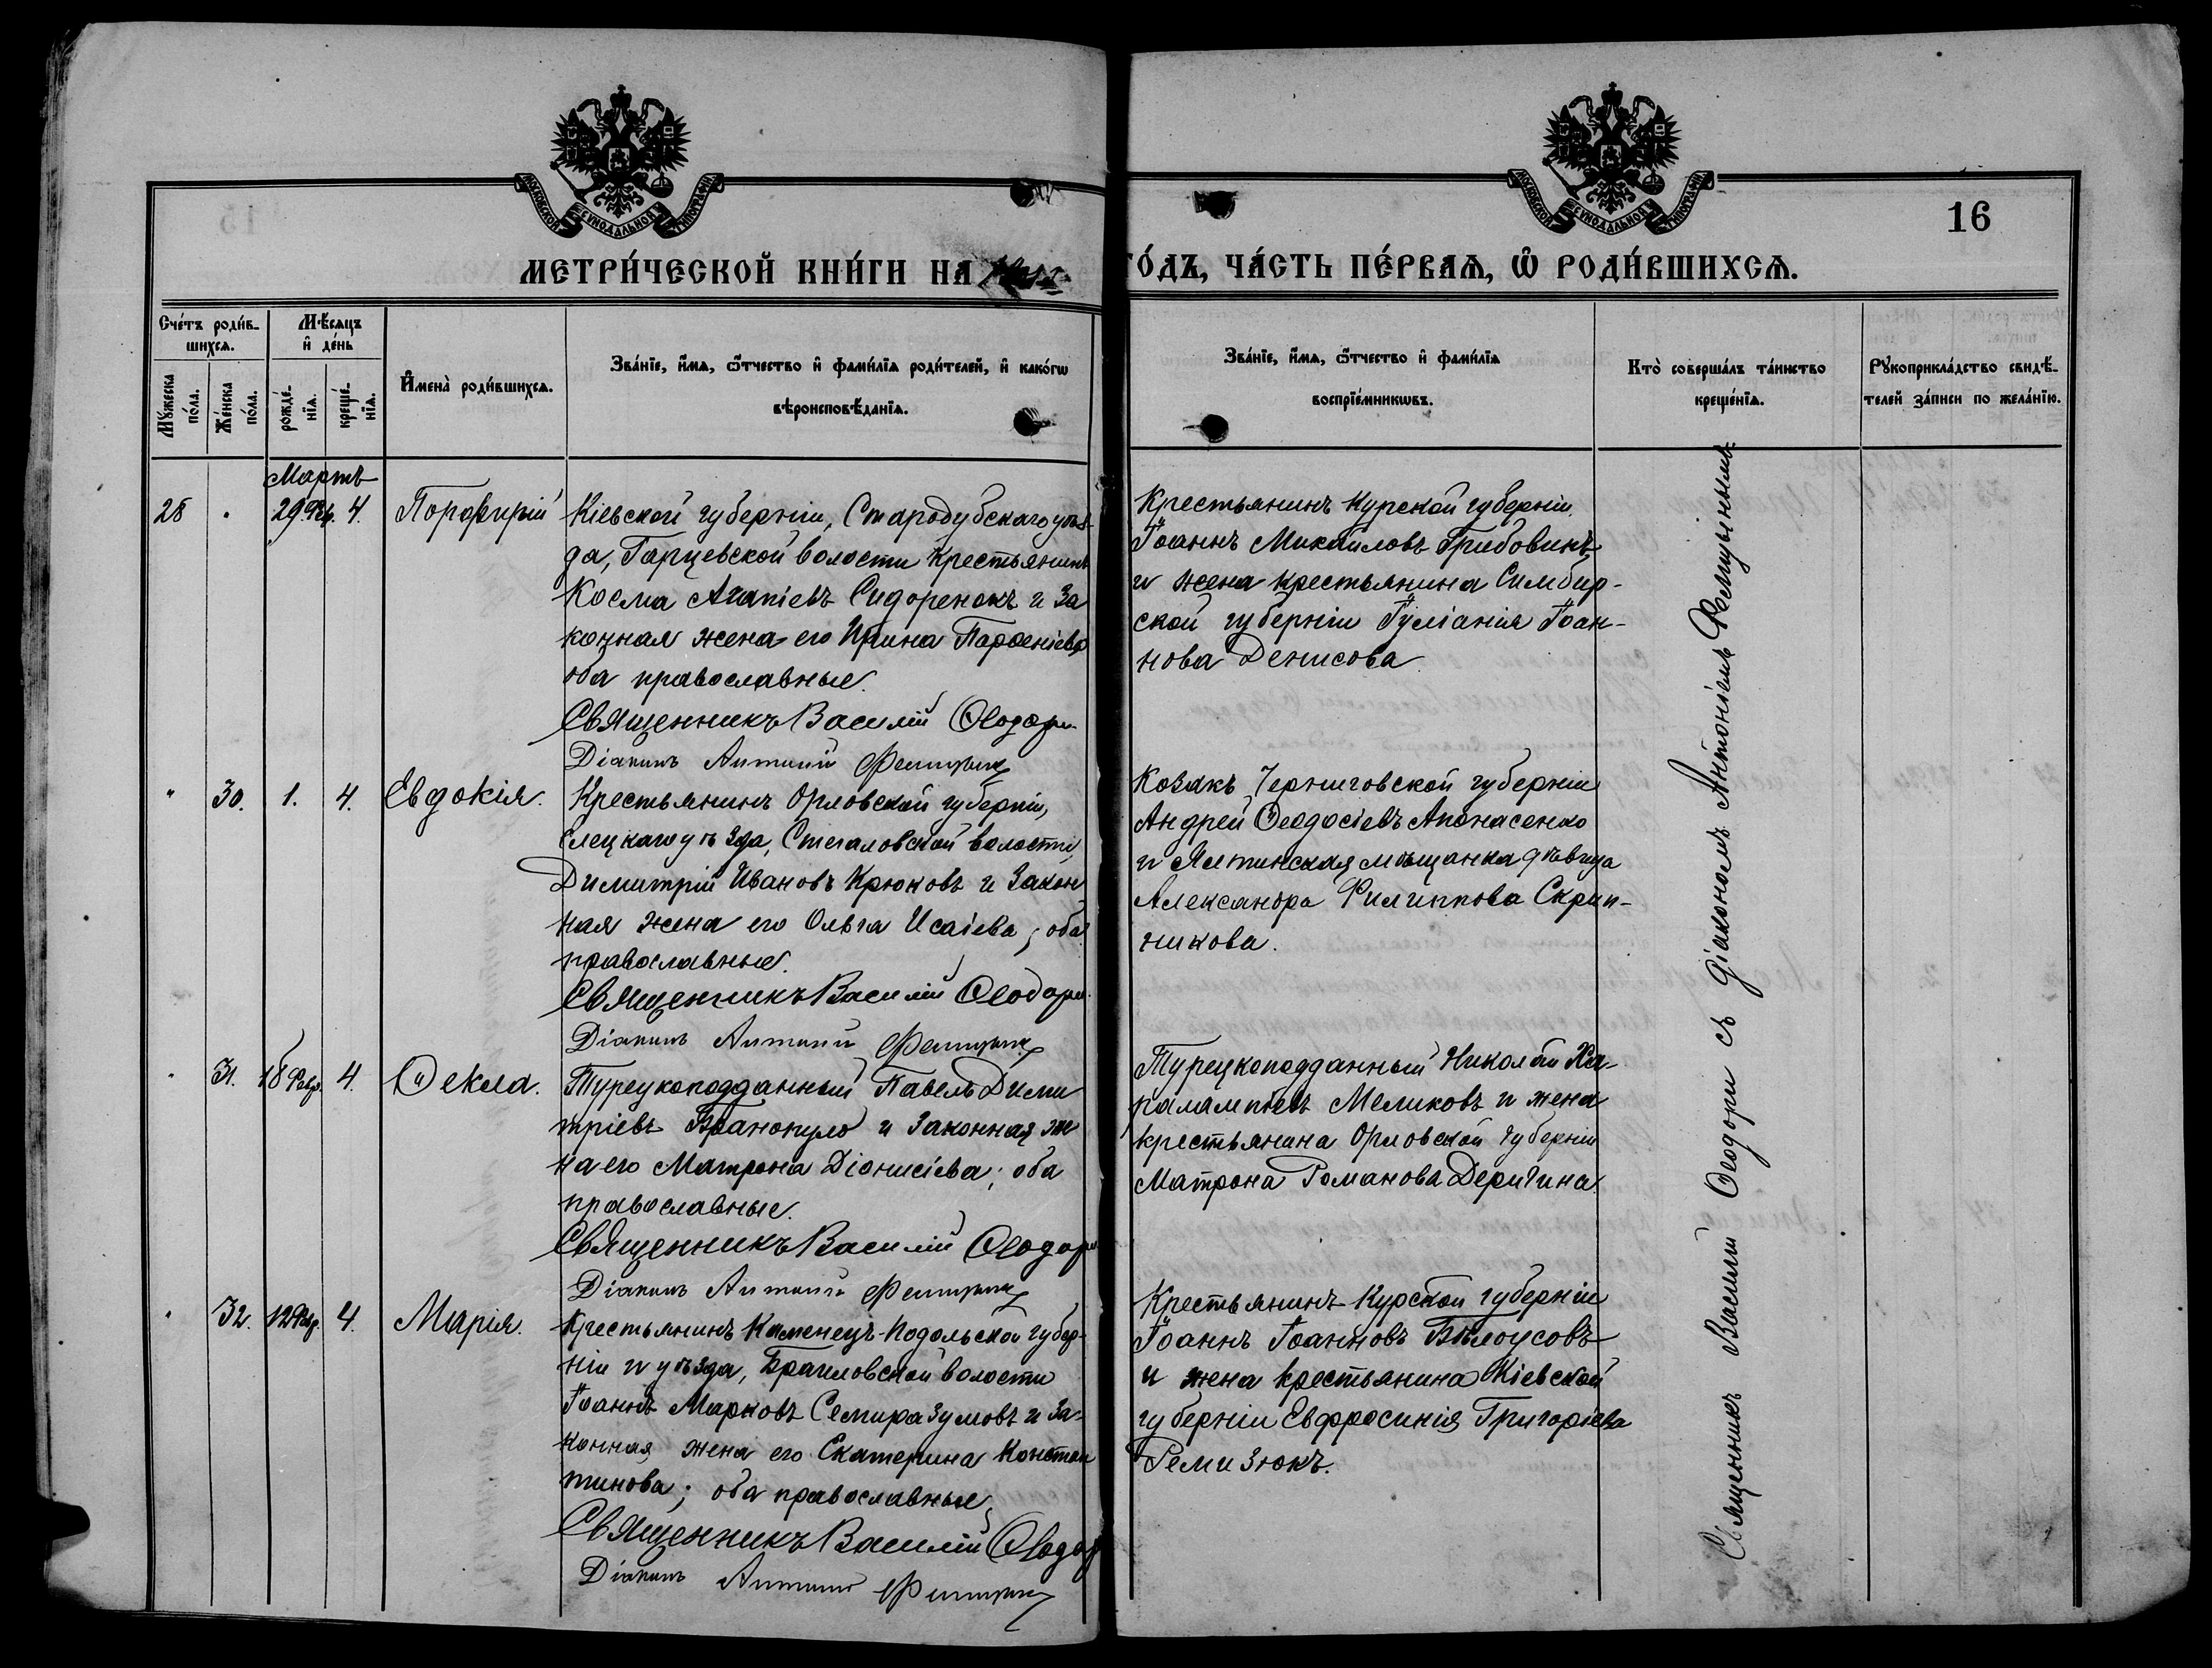 МОСКОВСКОЙ СУНОДАЛЬНОЙ ТИПОГРАФІИ
МОСКОВСКОЙ СУНОДАЛЬНОЙ ТИПОГРАФІИ
16
МЕТРИ́ЧЕСКОЙ КНИ́ГИ НА
ГО́ДЪ, ЧА́СТЬ ПЕ́РВАѦ, Ѡ҆ РОДИ́ВШИХСѦ.
Сче́тъ роди́в-
шихсѧ.
Мѣ́сѧцъ
и҆ де́нь
Мꙋ́жеска
по́ла.
Же́нска
по́ла.
рожде́-
нїѧ.
креще́-
нїѧ.
И҆мена̀ роди́вшихсѧ.
Зва́нїе, и҆́мѧ, ѻ҆́тчество и҆ фами́лїѧ роди́телей, и҆ како́гѡ
вѣроисповѣ́данїѧ.
Зва́нїе, и҆́мѧ, ѻ҆́тчество и҆ фами́лїѧ
воспрїе́мникѡвъ.
Кто̀ соверша́лъ та́инство
креще́нїѧ.
Рꙋкоприкла́дство свидѣ́-
телей за́писи по жела́нїю.
Мартъ
28 " 29 Фев. 4. Порфирій
Кіевской губерніи, Стародубскаго уѣз-
да, Гарцевской волости крестьянинъ
Косма Агапіевъ Сидоренокъ и за
конная жена его Ирина Парѳеніева
оба православные.
Священникъ Василій Ѳеодори
Діаконъ Антоній
Крестьянинъ Курской губерніи
Іоаннъ Михаиловъ Грибовикъ
и жена крестьянина Симбир-
ской губерніи Іуліанія Іоан-
нова Денисова
" 30. 1. 4. Евдокія.
Крестьянинъ Орловской губерніи,
Елецкаго уѣзда, Стегаловской волости,
Димитрій Ивановъ Крюковъ и закон
ная жена его Ольга Исаіева; оба
православные.
Священникъ Василій Ѳеодори
Діаконъ Антоній
Козакъ Черниговской губерніи
Андрей Ѳеодосіевъ Апонасенко
и Ялтинская мѣщанка дѣвица
Александра Филиппова Скрип-
никова.
" 31. 18 Февр. 4. Ѳекла.
Турецкоподданный Павелъ Дими
тріевъ и законная же
на его Матрона Діонисіева; оба
православные.
Священникъ Василій Ѳеодори
Діаконъ Антоній
Турецкоподданный Николай Ха-
рлампіевъ Меликовъ и жена
крестьянина Орловской губерніи
Матрона Романова Деричина
" 32. 12 Февр. 4. Марія.
Крестьянинъ Каменецъ-Подольской губер-
ніи и уѣзда, Браиловской волости
Іоаннъ Марковъ Семиразумовъ и за-
конная жена его Екатерина Констан
тинова; оба православные.
Священникъ Василій Ѳеодор
Діаконъ Антоній
Крестьянинъ Курской губерніи
Іоаннъ Іоанновъ Бѣлоусовъ
и жена крестьянина Кіевской
губерніи Евфросинія Григоріева
Ремизюкъ.
Священникъ Василій Ѳеодори съ діакономъ Антоніемъ